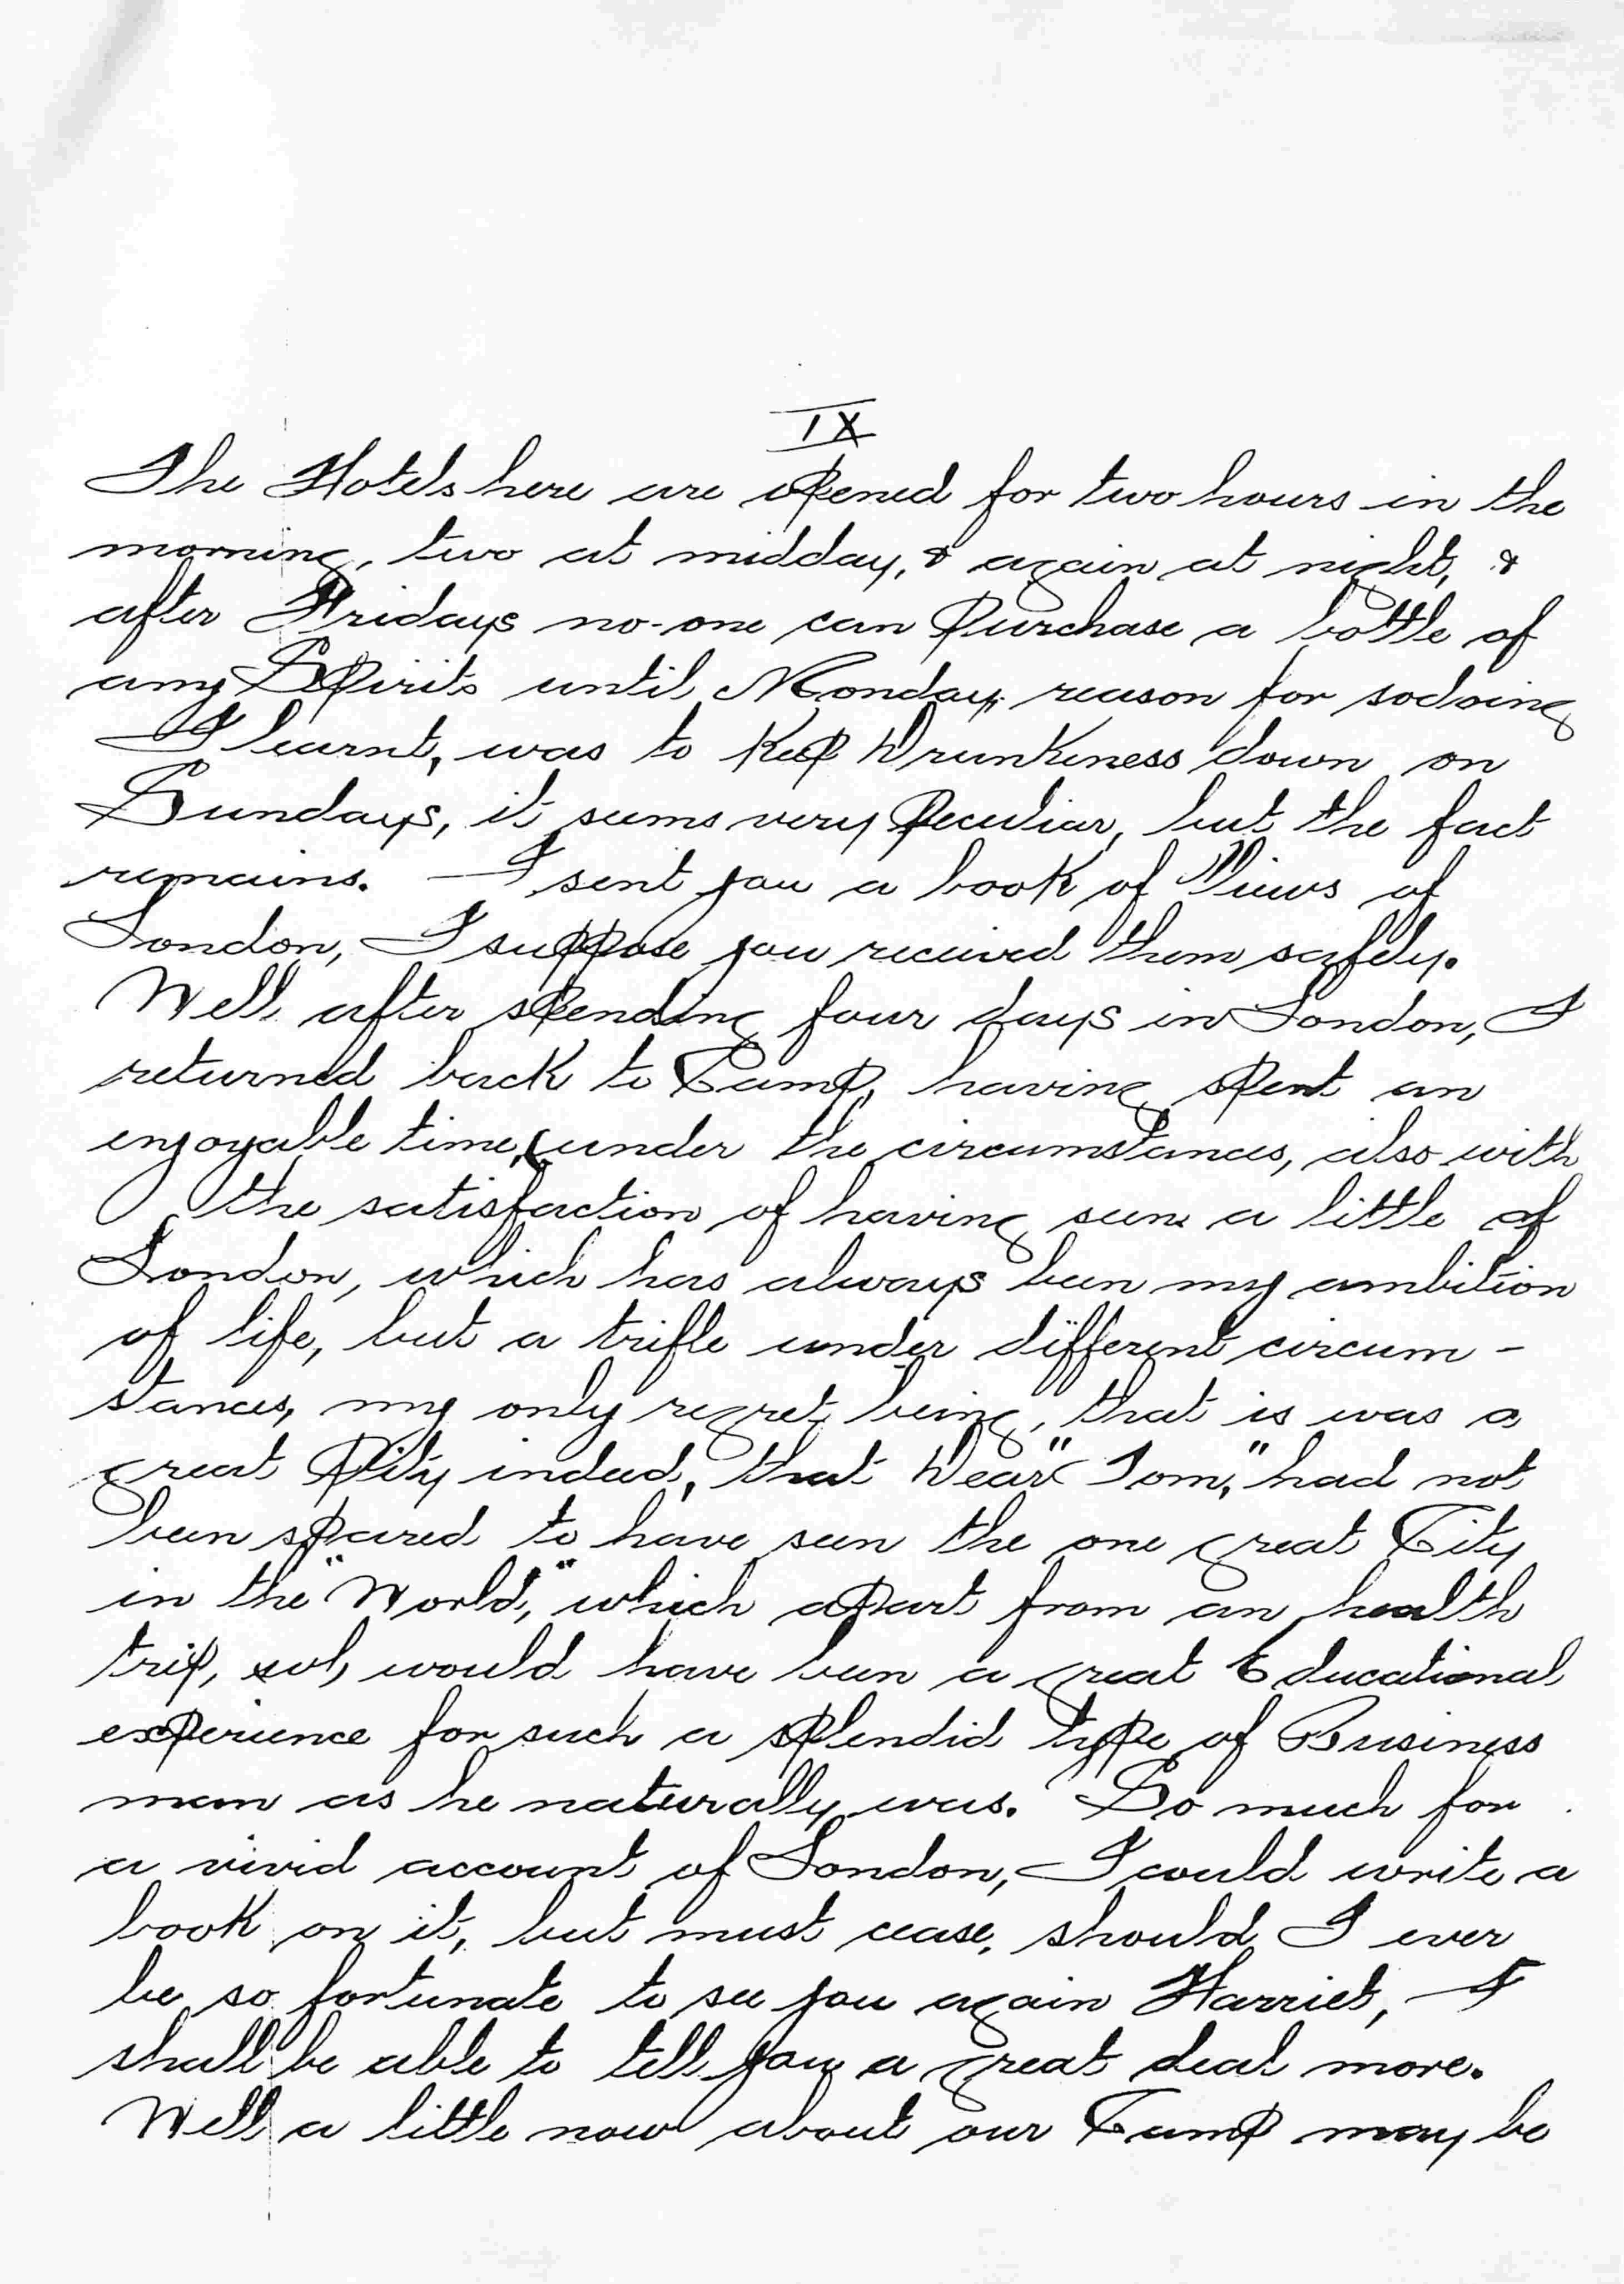 IX
The Hotels here are opened for two hours in the
morning, two at midday, & again at night, &
after Fridays no-one can Purchase a bottle of
any Spirits until Monday, reason for sodoing
I learnt, was to keep Drunkeness down on
Sundays, it seems very Peculiar, but the fact
remains. I sent you a book of Views of
London, I suppose you received them safely.
Well after spending four days in London, I
returned back to Camp, having spent an
enjoyable time, (under the circumstances, also with
the satisfaction of having seen a little of
London, which has always been my ambition
of life, but a trifle under different circum-
stances, my only regret being, that is was a
great Pity indeed, that Dear "Tom," had not
been spared to have seen the one great City
in the "World," which apart from an health
trip, would have been a great Educational
experience for such a splendid type of Business
man as he naturally was. So much for
a vivid account of London, I could write a
book on it, but must cease, should I ever
be so fortunate to see you again Harriet, I
shall be able to tell you a great deal more.
Well a little now about our Camp may be